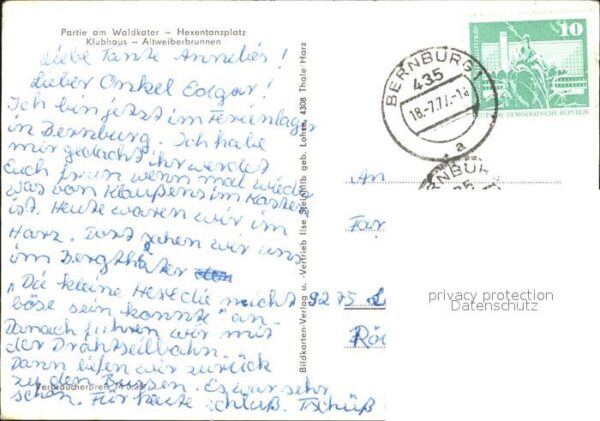 Partie am Waldkater – Hexentanzplatz
Klubhaus – Altweiberbrunnen
Liebe Tante Annelies!
Lieber Onkel Edgar!
Ich bin jetzt im Ferienlager
in Bernburg. Ich habe
mir gedacht ihr werdet
Euch freun wenn mal wieder
was von Klaußens im Kasten
ist. Heute waren wir im
Harz. Dort sahen wir uns
im Bergtheater
„Die kleine Hexe die nicht
böse sein konnte" an.
Danach fuhren wir mit
der Drahtseilbahn.
Dann liefen wir zurück
zu den Bussen. Es war sehr
schön. Für heute Schluß. Tschüß
Verbraucherpreis M 0,20
Bildkarten-Verlag u. -Vertrieb Ilse geb. Lohse, 4308 Thale Harz
BERNBURG 1
435
18.-7.77.-18
a
10
DEUTSCHE DEMOKRATISCHE REPUBLIK
BERNBURG
An
Fa
9275
Rö
privacy protection
Datenschutz